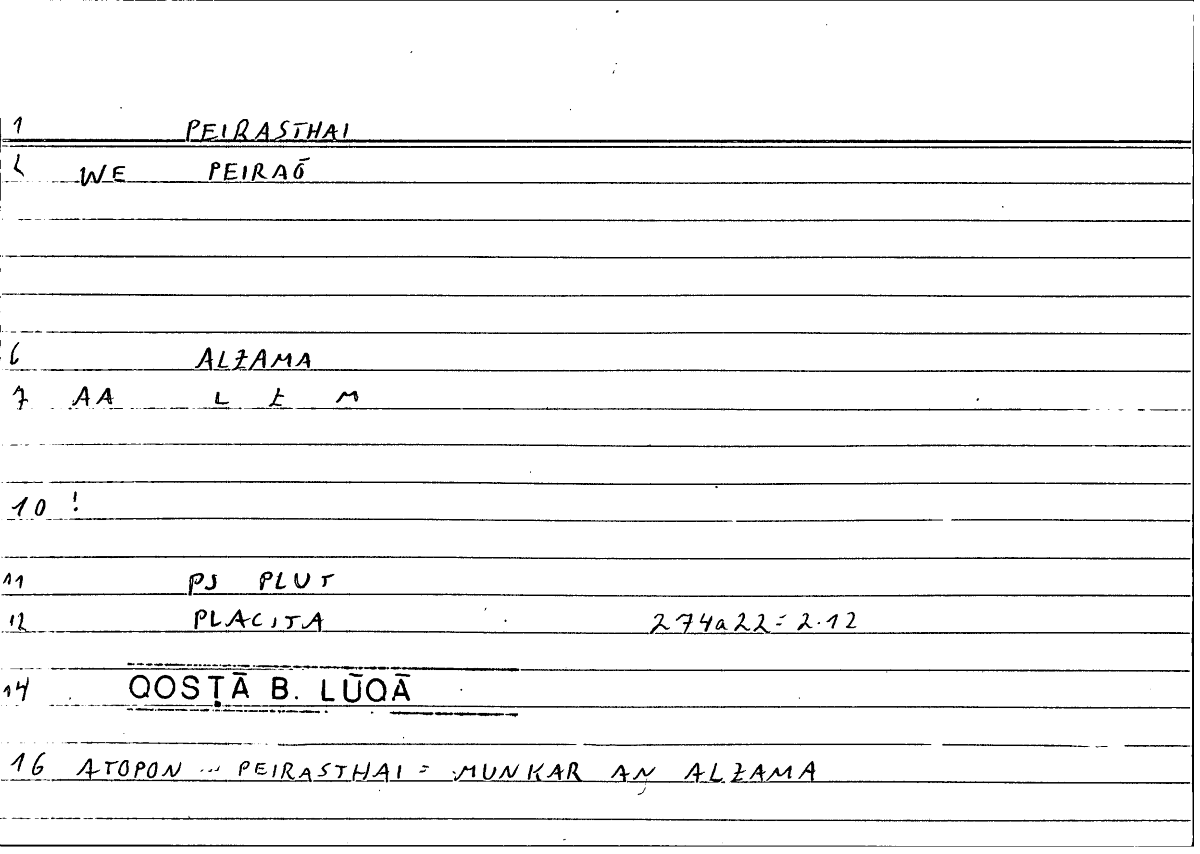 1 PEIRASTHAI
2 WE PEIRAŌ
6 ALZAMA
7 AA L Z M
10 !
11 PS PLUT
12 PLACITA 274a22 = 2.12
14 QOSṬĀ B. LŪQĀ
16 ATOPON ... PEIRASTHAI = MUNKAR AN ALZAMA